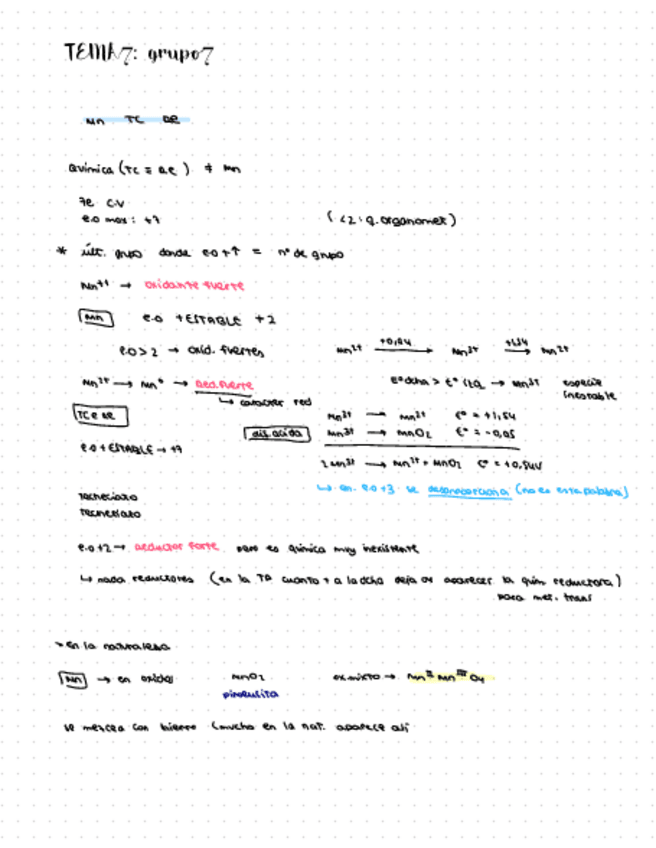 TEMA 7: grupo 7
Mn TC RE
Química (TC ≡ RE) ≠ Mn
7e C.V
e.o max: +7 (<2: q. organomet)
* últ. grupo donde e.o +↑ = nº de grupo
Mn⁺⁷ → oxidante fuerte
Mn e.o +ESTABLE +2
e.o > 2 → oxid. fuertes
Mn²⁺ → Mn³⁺ +1,54 → Mn²⁺
Mn²⁺ → Mn⁰ → Red. fuerte E° dcha > E° izq → Mn³⁺ especie inestable
↳ caracter red
TC e RE
Mn³⁺ → Mn²⁺ E° = +1,54
dis. acida Mn³⁺ → MnO2 E° =
e.o +ESTABLE → +7
2Mn³⁺ → Mn²⁺ + MnO2 E° =
↳ en e.o +3 se (no es esta palabra)
e.o +2 → Reductor forte pero es química muy inexistente
↳ nada reductores (en la TP cuanto + a la dcha deja de aparecer la quim reductora)
para met. trans
> En la naturaleza
Mn → en oxidos MnO2 ox mixto → Mn^II Mn^III O4
pirolusita
se mezcla con hierro (mucho en la nat. aparece así